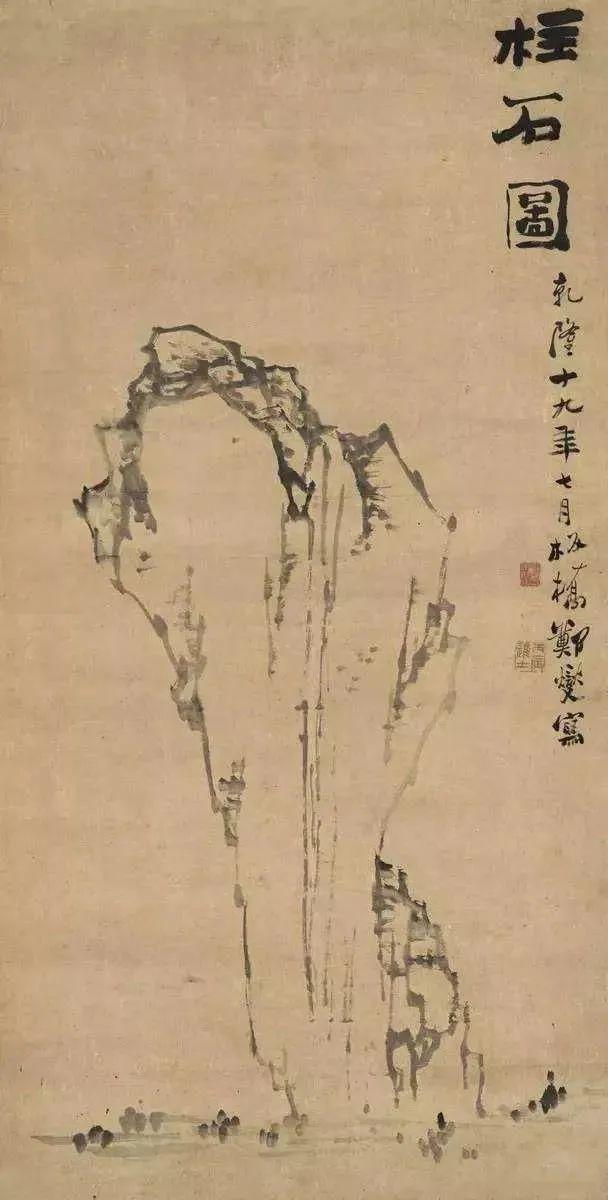 柱石圖
乾隆十九年七月板橋鄭燮寫